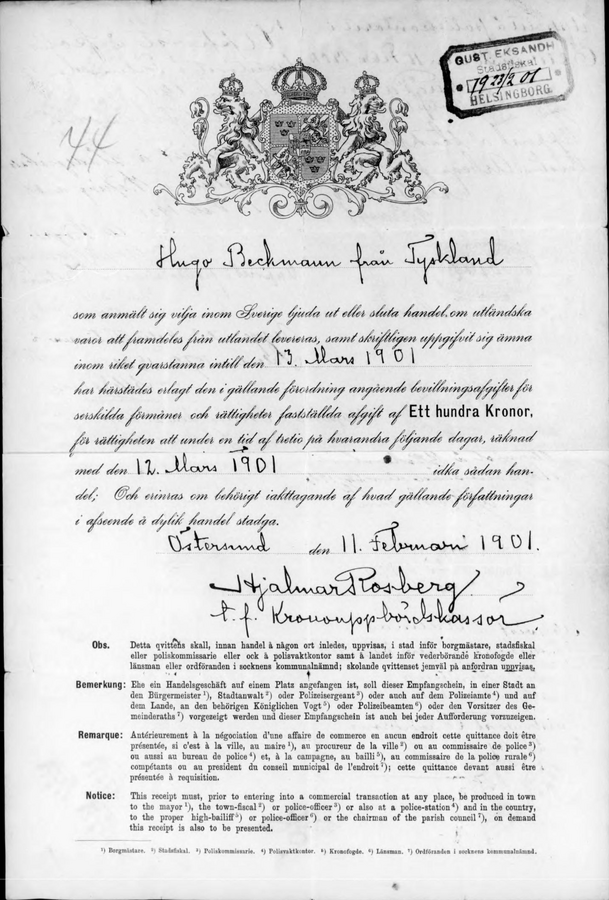 GUST. EKSANDH
Stadsfiskal
19 23/2 01
HELSINGBORG
44
Hugo Beckmann från Tyskland
som anmält sig vilja inom Sverige bjuda ut eller sluta handel, om utländska
varor att framdeles från utlandet levereras, samt skriftligen uppgifvit sig ämna
inom riket qvarstanna intill den 13. Mars 1901
har härstädes erlagt den i gällande förordning angående bevillningsafgifter för
serskilda förmåner och rättigheter fastställda afgift af Ett hundra Kronor,
för rättigheten att under en tid af tretio på hvarandra följande dagar, räknad
med den 12. Mars 1901 idka sådan han-
del; Och erinras om behörigt iakttagande af hvad gällande författningar
i afseende å dylik handel stadga.
Östersund den 11. Februari 1901.
Hjalmar Rosberg
t. f. Kronouppbördskassör
Obs. Detta qvittens skall, innan handel å någon ort inledes, uppvisas, i stad inför borgmästare, stadsfiskal
eller poliskommissarie eller ock å polisvaktkontor samt å landet inför vederbörande kronofogde eller
länsman eller ordföranden i socknens kommunalnämnd; skolande qvittenset jemväl på anfordran uppvisas.
Bemerkung: Ehe ein Handelsgeschäft auf einem Platz angefangen ist, soll dieser Empfangschein, in einer Stadt an
den Bürgermeister ¹), Stadtanwalt ²) oder Polizeisergeant ³) oder auch auf dem Polizeiamte ⁴) und auf
dem Lande, an den behörigen Königlichen Vogt ⁵) oder Polizeibeamten ⁶) oder den Vorsitzer des Ge-
meinderaths ⁷) vorgezeigt werden und dieser Empfangschein ist auch bei jeder Aufforderung vorzuzeigen.
Remarque: Antérieurement à la négociation d'une affaire de commerce en aucun endroit cette quittance doit être
présentée, si c'est à la ville, au maire ¹), au procureur de la ville ²) ou au commissaire de police ³)
ou aussi au bureau de police ⁴) et, à la campagne, au bailli ⁵), au commissaire de la police rurale ⁶)
compétants ou au president du conseil municipal de l'endroit ⁷); cette quittance devant aussi être
présentée à requisition.
Notice: This receipt must, prior to entering into a commercial transaction at any place, be produced in town
to the mayor ¹), the town-fiscal ²) or police-officer ³) or also at a police-station ⁴) and in the country,
to the proper high-bailiff ⁵) or police-officer ⁶) or the chairman of the parish council ⁷), on demand
this receipt is also to be presented.
¹) Borgmästare. ²) Stadsfiskal. ³) Poliskommissarie. ⁴) Polisvaktkontor. ⁵) Kronofogde. ⁶) Länsman. ⁷) Ordföranden i socknens kommunalnämnd.